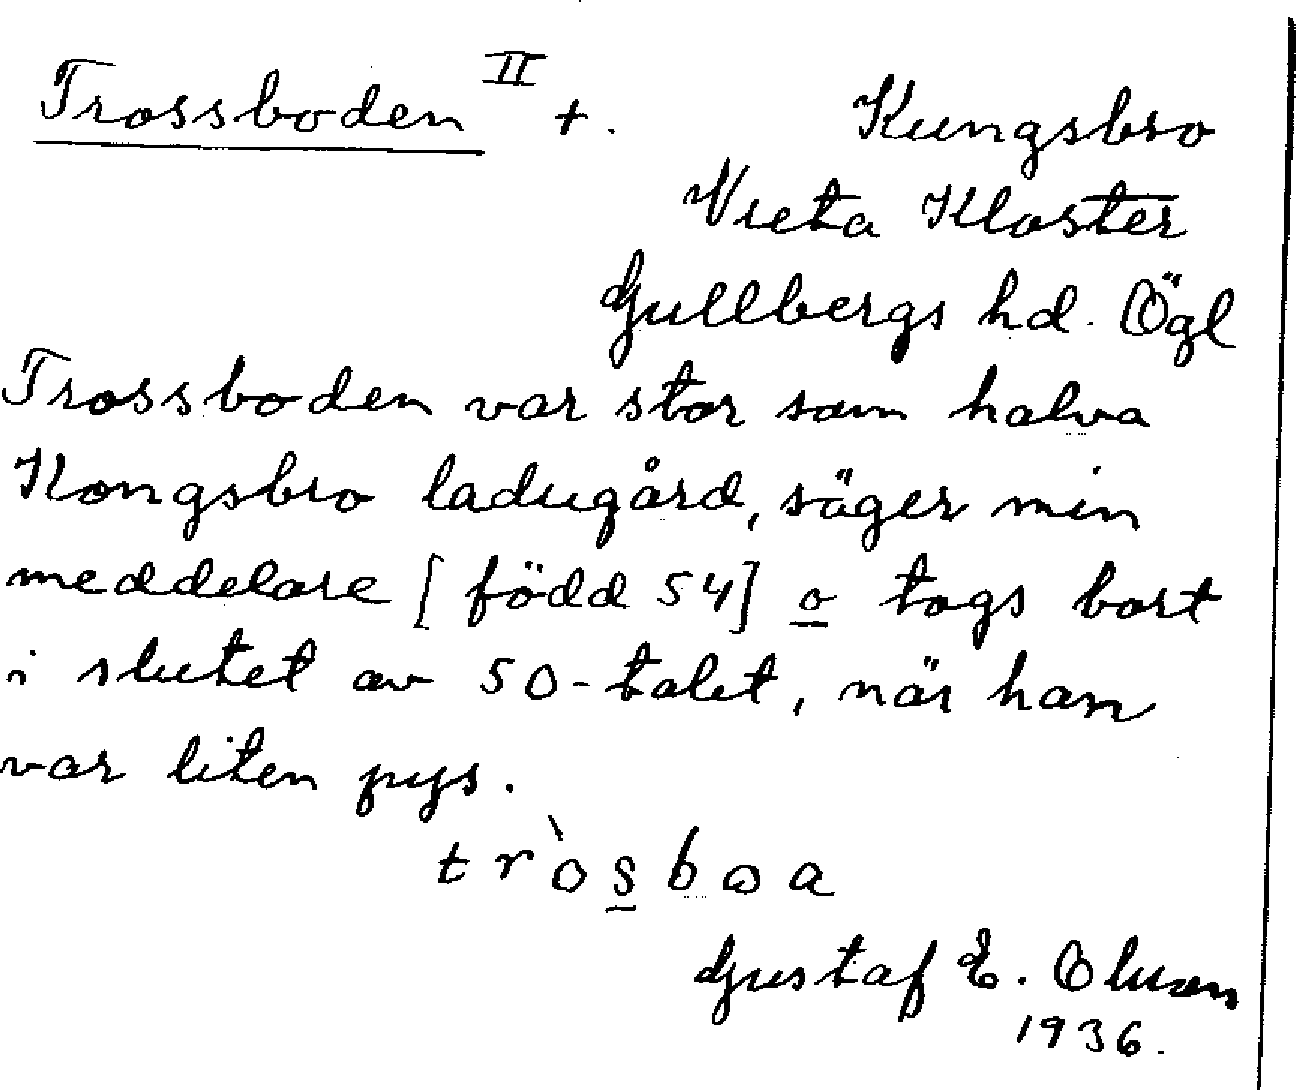 Trossboden II +.
Kungsbro
Vreta Kloster
Gullbergs hd. Ögl
Trossboden var stor som halva
Kongsbro ladugård, säger min
meddelare [född 54] o togs bort
i slutet av 50-talet, när han
var liten pys.
tròsbωa
Gustaf E. Olsson
1936.